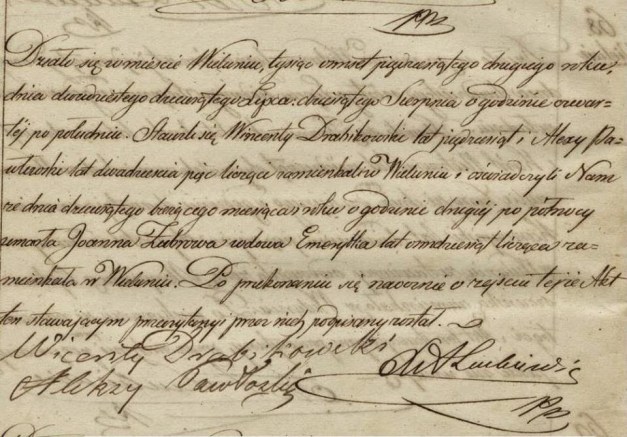 Działo się w mieście Wieluniu, tysiąc ośmset pięćdziesiątego drugiego roku,
dnia dwudziestego dziewiątego Lipca: dziesiątego Sierpnia o godzinie czwar-
tej po południu. Stawili się Wincenty Drabikowski lat pięćdziesiąt i Alexy Pa-
włoski lat dwadzieścia pięć liczący zamieszkali w Wieluniu i oświadczyli Nam
że dnia dziewiątego bieżącego miesiąca i roku o godzinie drugiej po północy
umarła Joanna Zubrowa wdowa Emerytka lat ośmdziesiąt licząca za-
mieszkała w Wieluniu. Po przekonaniu się naocznie o zejściu tejże Akt
ten stawającym przeczytany i przez nich podpisany został.
Wicenty Drabikowski
Alekzy Pawłoski